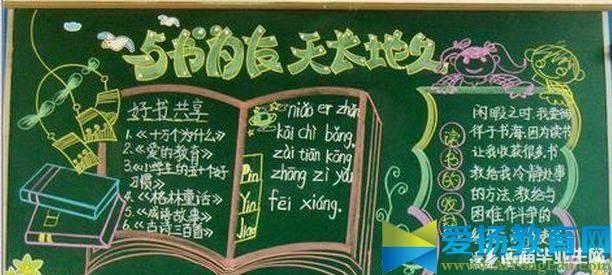 与书为友 天长地久
好书共享
1.《十万个为什么》
2.《爱的教育》
3.《小学生的五十个好
习惯》
4.《格林童话》
5.《成语故事》
6.《古诗三百首》
niǎo er zhǎn
kāi chì bǎng,
zài tiān kōng
zhōng zì yóu
fēi xiáng.
Yin
Jiao
读书的收
闲暇之时,我爱徜
徉于书海,因为读书
让我收获很多.书
教给我冷静处事
的方法,教给与
困难作斗争的
使
爱扬教育网
毕业生网